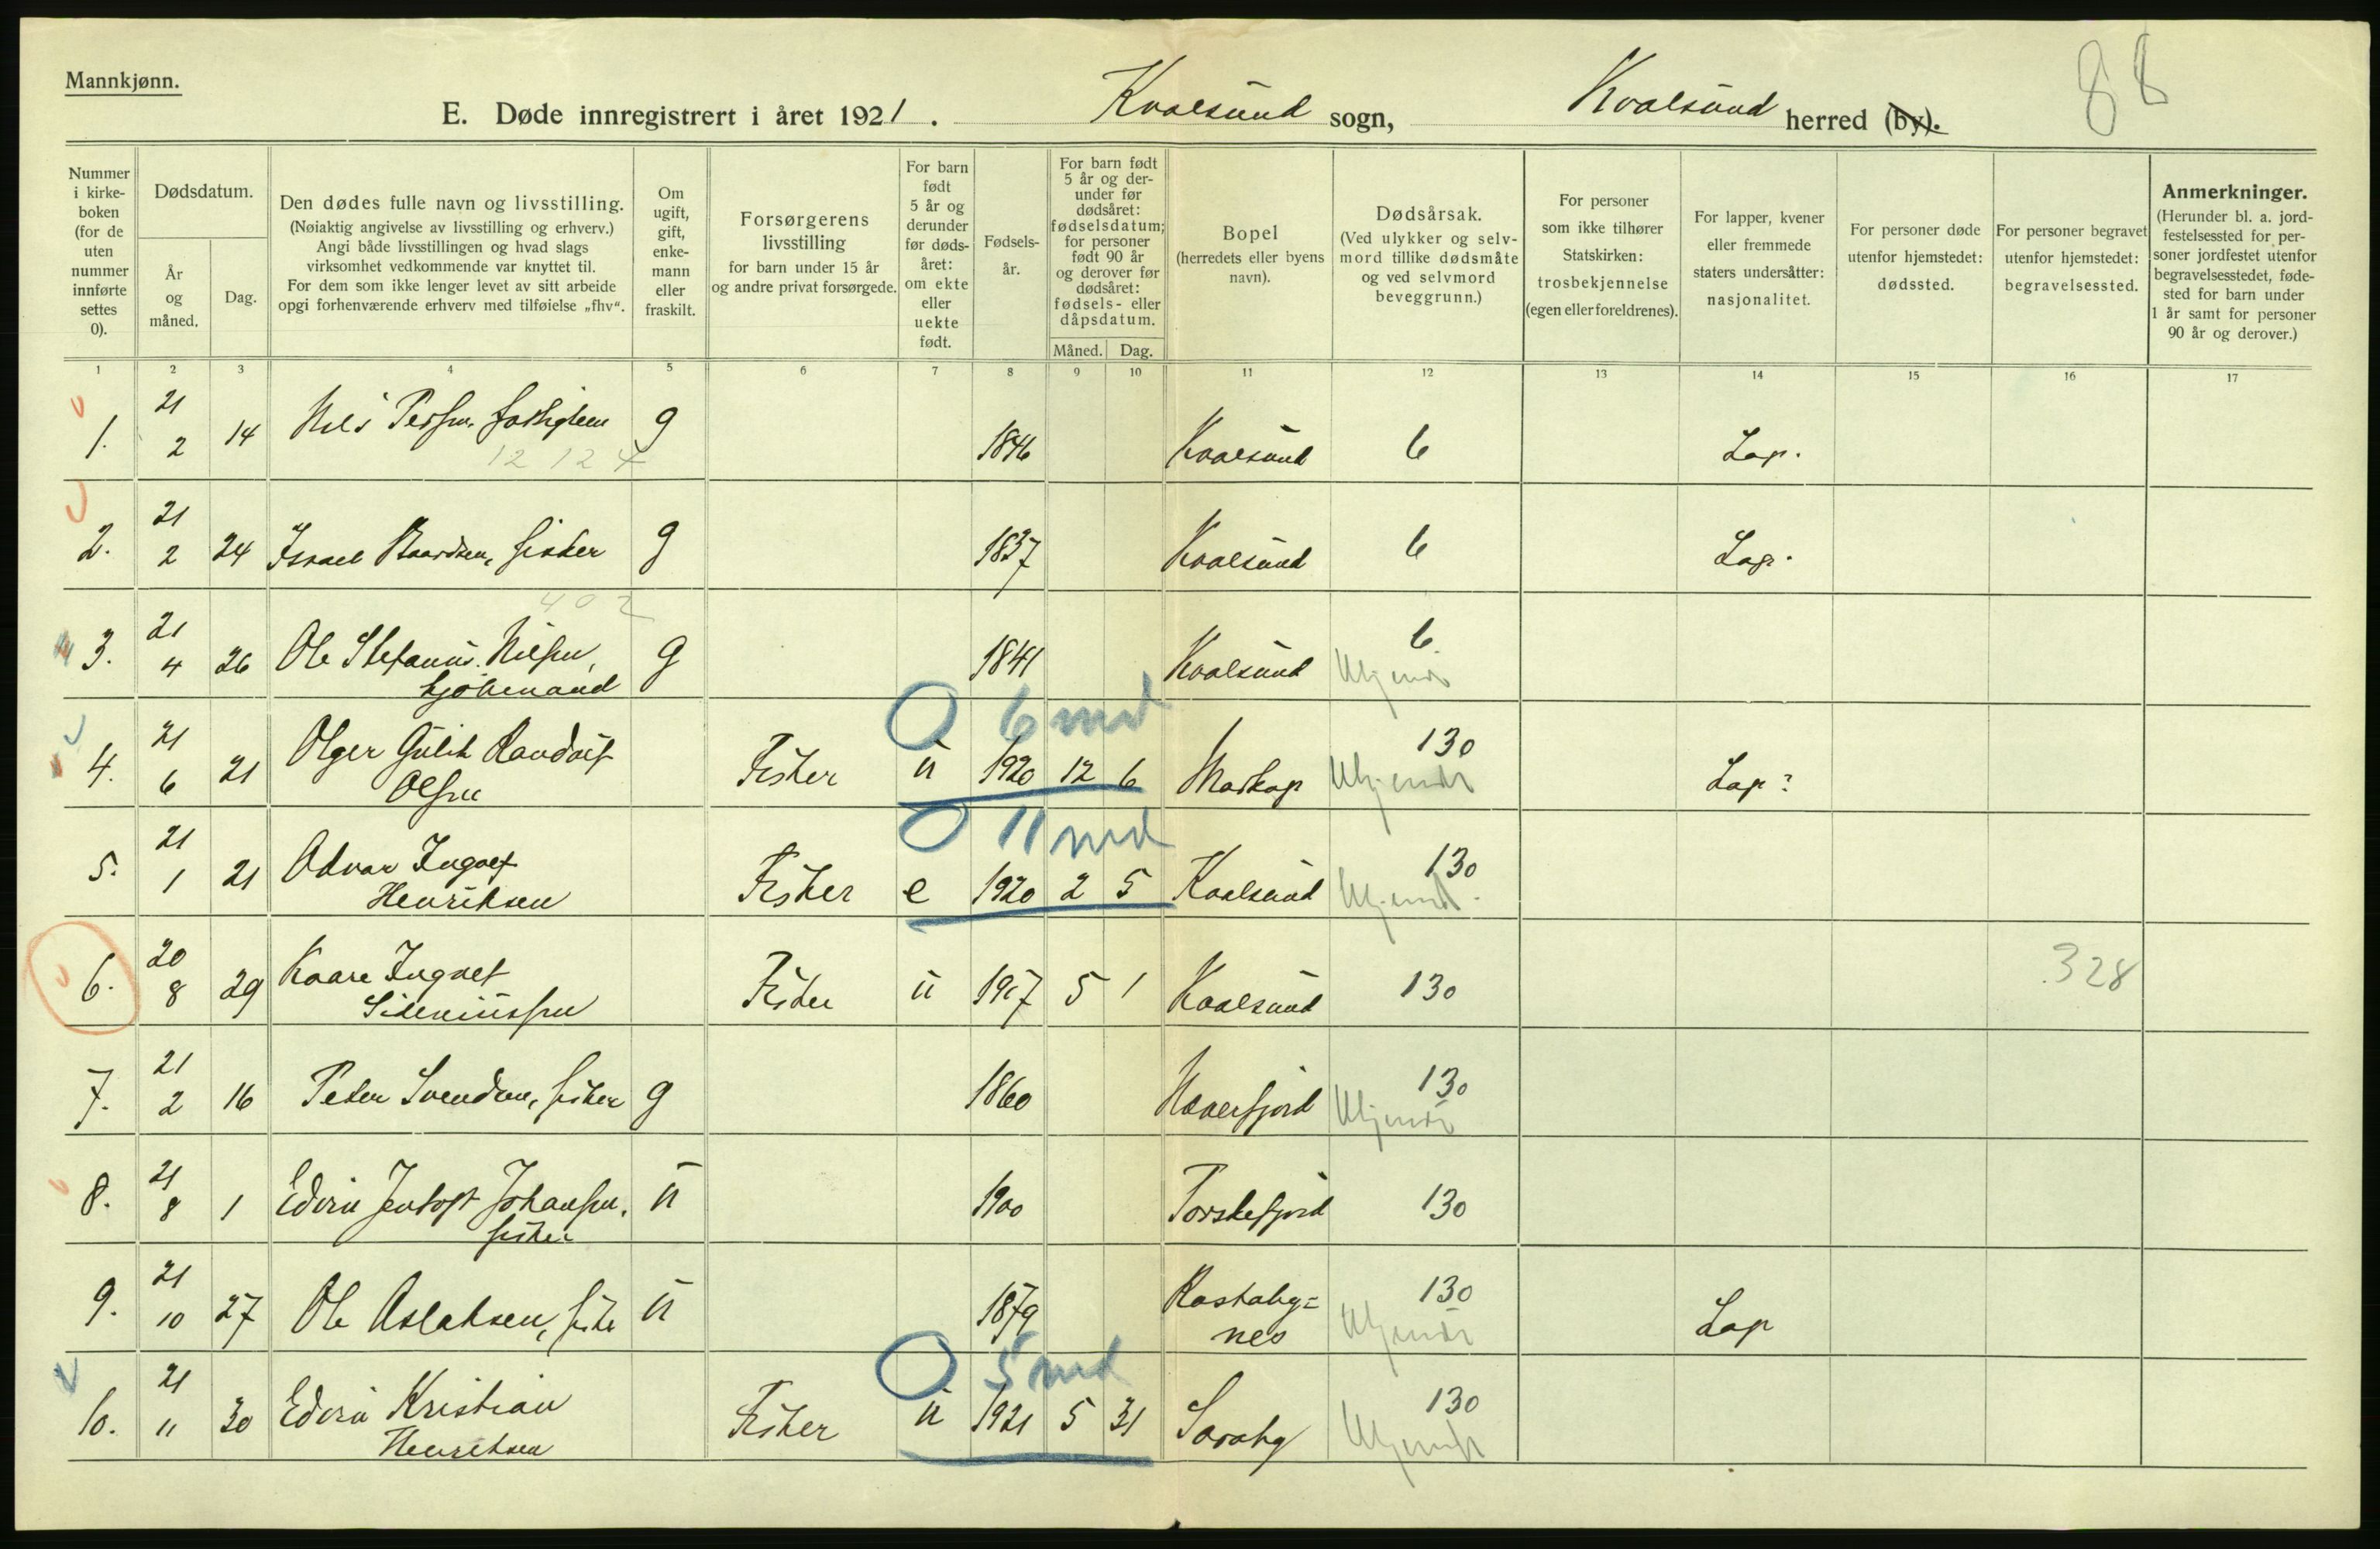 Mannkjønn.
88
E. Døde innregistrert i året 1921. Kvalsund sogn, Kvalsund herred (by).
Nummer i kirkeboken (for de uten nummer innførte settes 0).
Dødsdatum.
År og måned.
Dag.
Den dødes fulle navn og livsstilling.
(Nøiaktig angivelse av livsstilling og erhverv.)
Angi både livsstillingen og hvad slags
virksomhet vedkommende var knyttet til.
For dem som ikke lenger levet av sitt arbeide
opgi forhenværende erhverv med tilføielse „fhv“.
Om ugift, gift, enkemann eller fraskilt.
Forsørgerens
livsstilling
for barn under 15 år
og andre privat forsørgede.
For barn født 5 år og derunder før dødsåret: om ekte eller uekte født.
Fødselsår.
For barn født 5 år og derunder før dødsåret: fødselsdatum; for personer født 90 år og derover før dødsåret: fødsels- eller dåpsdatum.
Måned. Dag.
Bopel
(herredets eller byens
navn).
Dødsårsak.
(Ved ulykker og selvmord tillike dødsmåte
og ved selvmord
beveggrunn.)
For personer
som ikke tilhører
Statskirken:
trosbekjennelse
(egen eller foreldrenes).
For lapper, kvener
eller fremmede
staters undersåtter:
nasjonalitet.
For personer døde
utenfor hjemstedet:
dødssted.
For personer begravet
utenfor hjemstedet:
begravelsessted.
Anmerkninger.
(Herunder bl. a. jordfestelsessted for personer jordfestet utenfor
begravelsesstedet, fødested for barn under
1 år samt for personer
90 år og derover.)
1 2 3 4 5 6 7 8 9 10 11 12 13 14 15 16 17
1. 21 2 14 Nils Perssen g 1846 Kvalsund 6 Lap.
12 12 4
2. 21 2 24 Israel Baardsen, fisker g 1837 Kvalsund 6 Lap.
402
3. 21 4 26 Ole Stefanus Nilsen, g 1841 Kvalsund 6
kjøbmand
6 md
4. 21 6 21 Olger Gülik Randolf Fisker u 1920 12 6 130 Lap?
Olsen
11 md
5. 21 1 21 Advar Ingolf Fisker e 1920 2 5 Kvalsund 130
Henriksen
6. 20 8 29 Kaare Ingolf Fisker u 1917 5 1 Kvalsund 130 328
Sideniussen
7. 21 2 16 Peder Svendsen, fisker g 1860 130
8. 21 8 1 Edvin Jentoft Johansen, u 1900 Torskefjord 130
fisker
9. 21 10 27 Ole Aslaksen, fisker u 1879 130 Lap
nes
5 md
10. 21 11 30 Edvin Kristian Fisker u 1921 5 31 Saraby 130
Henriksen